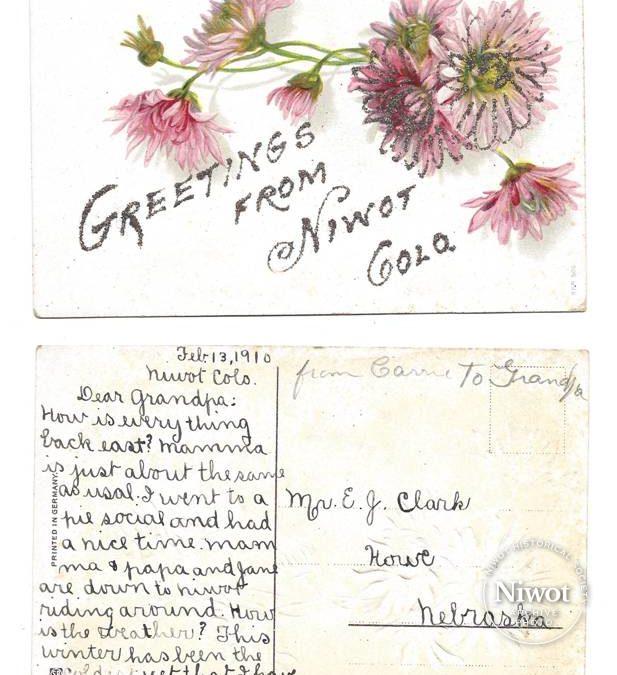 GREETINGS
FROM
NIWOT
COLO.
Feb. 13, 1910
Niwot Colo.
Dear Grandpa:
How is everything
back east? Mamma
is just about the same
as usal. I went to a
pie social and had
a nice time. Mam
ma & papa and Jane
are down to niwot
riding around. How
is the weather? This
winter has been the
coldest yet that I have
PRINTED IN GERMANY.
from Carrie To Grandpa
Mr. E. J. Clark
Howe
Nebraska
NIWOT HISTORICAL SOCIETY
Niwot
ARCHIVE
PHOTO